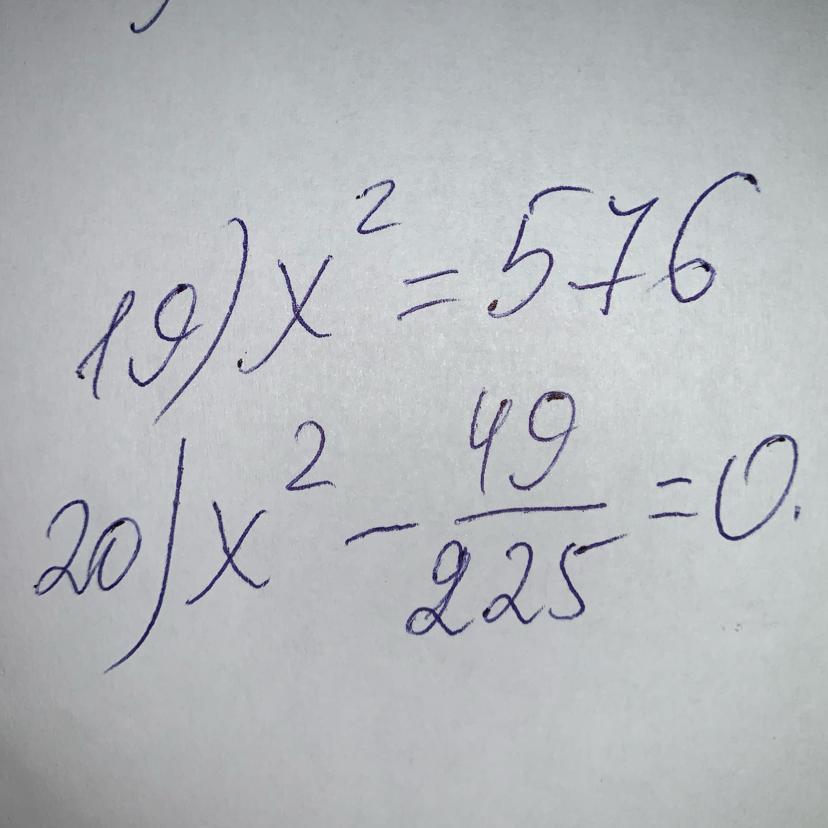 19) x² = 576
20) x² - 49/225 = 0.